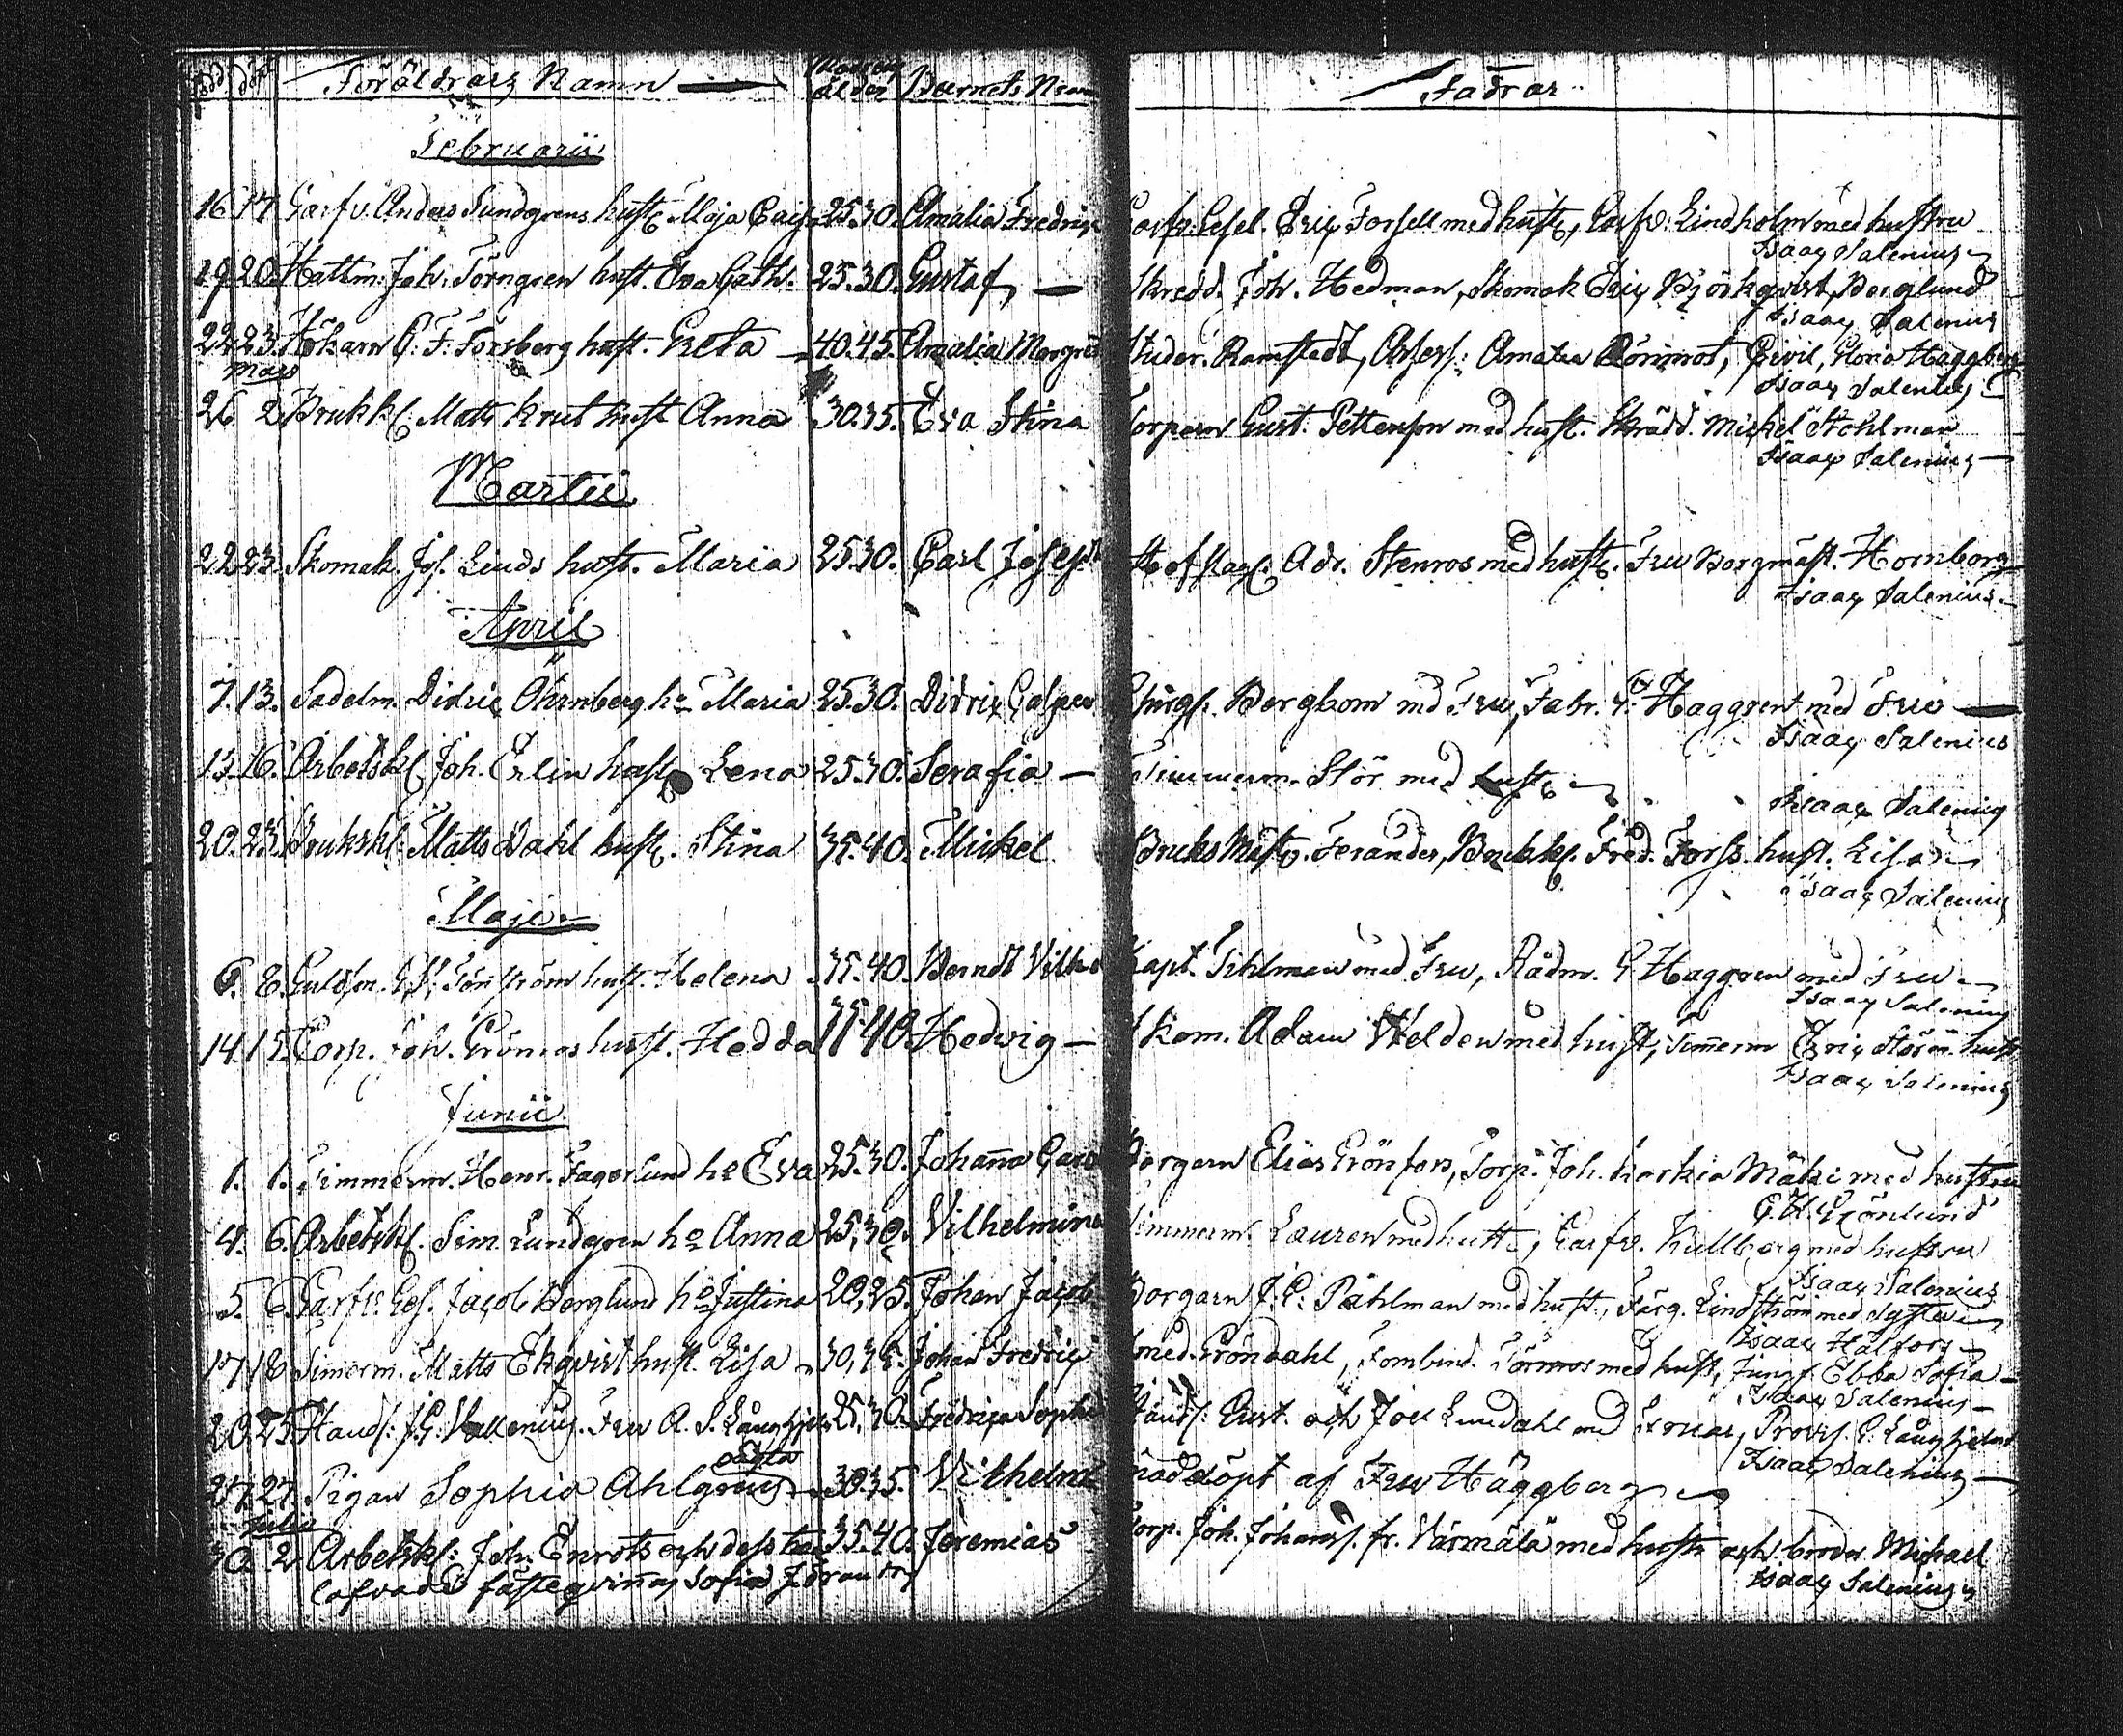 Föräldrars Namn ålder Barnets Namn Fadrar
Februarii
16. 17. Garfv. Anders Sundgrens hust. Maja Caisa 25.30. Amalia Fredrica Garfv. Gesel. Eric Forsell med hust, Garfv. Lindholm med hustru
Isaac Salenius
19. 20. Hattm. Joh. Törngren hust. Eva Cath. 25.30. Gustaf Skredd. Joh. Hedman, Skomak Eric Björkqvist, Berglund
Isaac Salenius
22. 23. C. F. Forsberg hust. Greta 40.45. Amalia Margret Studer. Ramstadt, Amalia Häggberg
Mars
Isaac Salenius
26 2 Brukk. Matts Krut hust Anna 30.35. Eva Stina Torparn Gust. Pettersson med hust. Skrädd. Mickel Stohlman
Isaac Salenius
Martii
22. 23. Skomak. Jos. Linds hust. Maria 25.30. Carl Joseph Adr. Stenros med hust. Fru Borgmäst. Hornborg
Isaac Salenius
April
7. 13. Sadelm. Didric Öhrnberg h:o Maria 25.30. Didric Bergbom md Fru, Fabr. Haggren med Fru
Isaac Salenius
13. 16. Arbetsk. Joh. Erlin hust Lena 25.30. Serafia Timmerm. Stör med hust
Isaac Salenius
20. 23. Brukskl. Matts Dahl hust. Stina 35.40. Mickel Bruks Mäst. Ferander, Fred. Forss. hust. Lisa
Isaac Salenius
Maji
6. 8. Guldsm. hust. Helena 35.40. Berndt Vilh Kapt. Tihlman med Fru, Rådm. G Haggren med Fru
Isaac Salenius
14. 15. Corp. Joh. Grönros hust. Hedda 35.40. Hedwig Skom. Adam Welden med hust, Timerm Eric Stör m. hust
Isaac Salenius
Junii
1. 1. Timmerm. Henr. Fagerlund h:o Eva 25.30. Johanna Caro Borgarn Elias Grönfors, Torp. Joh. Karkia Mäki med hustru
G. H. Grönlund
4. 6. Arbetsk. Sim. Lundgren h:o Anna 25,30. Vilhelmina Timmerm. Lauren med hust, Garfv. Kullberg med hustru
Isaac Salenius
5. 6. Garfv. Ges. Jacob Berglund h:o Justina 20,25. Johan Jacob Borgarn J. C. Påhlman med hust, Färg. Lindström med Syster
Isaac Hälfors
17. 18. Timerm. Matts Ekqvist hust. Lisa 30,35. Johan Fredric Smed. Gröndahl, Törnros med hust, Jungf Ebba Sofia
Isaac Salenius
20. 25. Handl. J. G. Wallenius. Fru A. S. Långhjelm 25,30. Fredrica Sophi Handl. Gust. och Joel Lundahl md Fruar, Provis. C. Långhjelm
Isaac Salenius
oägta
27. 27. Pigan Sophia Ahlgren 30.35. Vilhelm nöddöpt af Fru Häggberg
Julii
30. 2. Arbetsk. Joh. Enrots och dess tro 35.40. Jeremias Torp. Joh. Johanss. fr. Värmälä med hust och brodr. Michael
lofvade fästeqvinna Sofia
Isaac Salenius